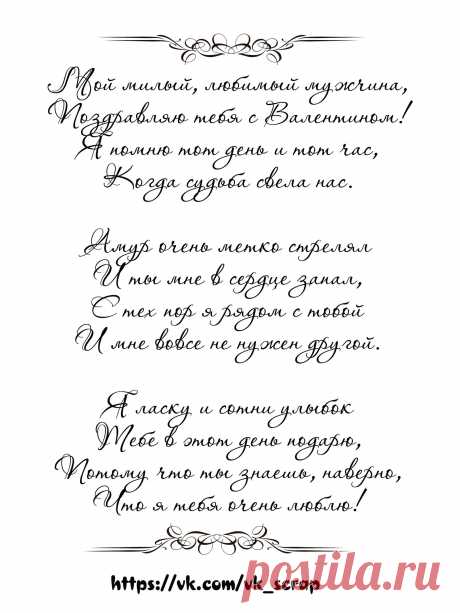 Мой милый, любимый мужчина,
Поздравляю тебя с Валентином!
Я помню тот день и тот час,
Когда судьба свела нас.
Амур очень метко стрелял
И ты мне в сердце запал,
С тех пор я рядом с тобой
И мне вовсе не нужен другой.
Я ласку и сотни улыбок
Тебе в этот день подарю,
Потому что ты знаешь, наверно,
Что я тебя очень люблю!
https://vk.com/vk_scrap
postila.ru